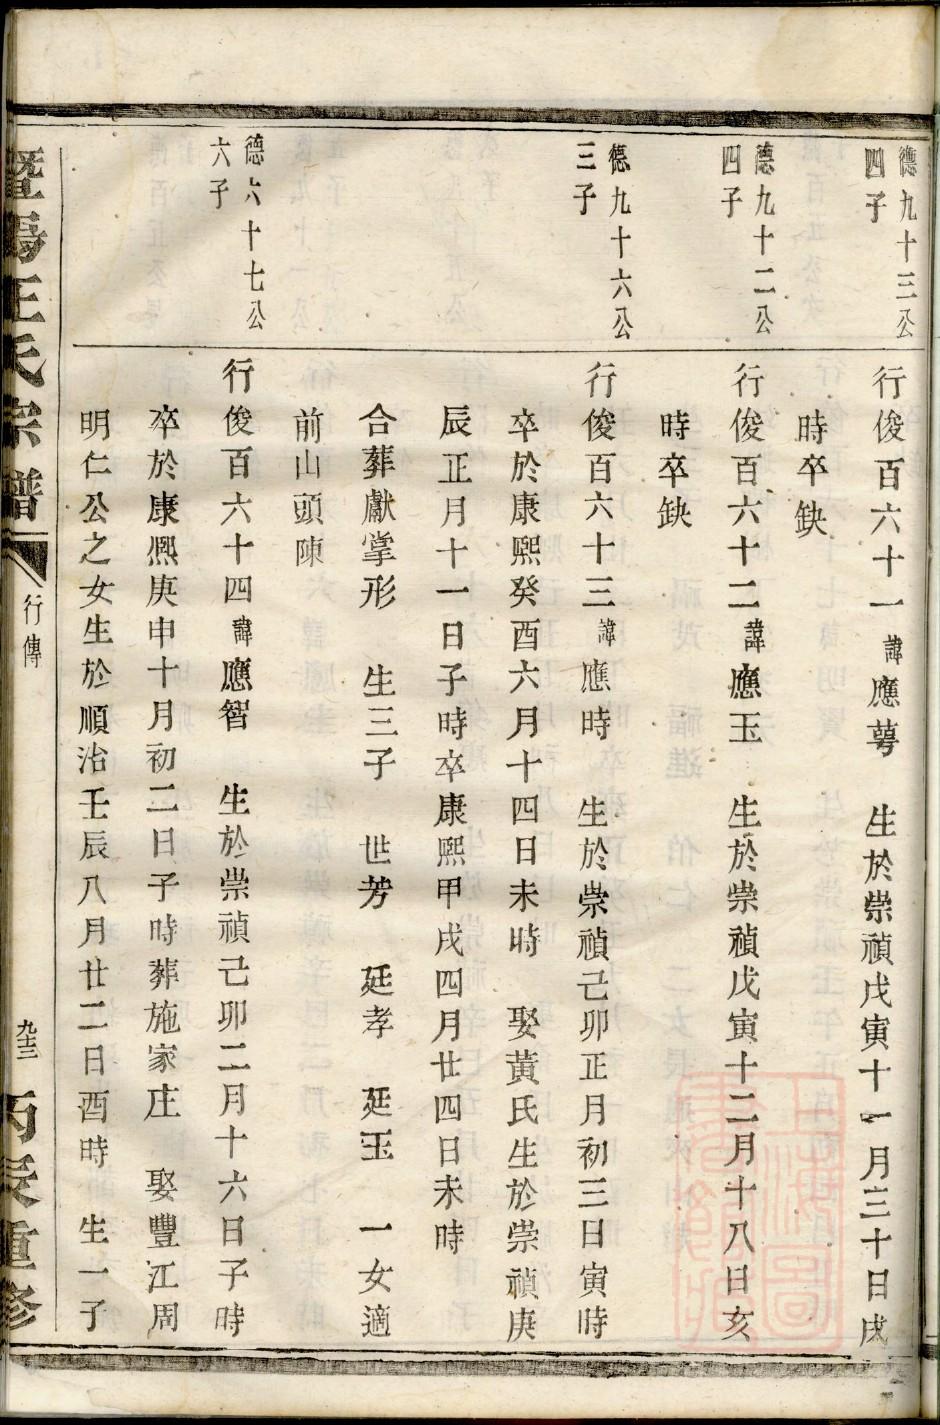 德九十三公
四子
行俊百六十一諱應萼 生於崇禎戊寅十一月三十日戌
時卒缺
德九十二公
四子
行俊百六十二諱應玉 生於崇禎戊寅十二月十八日亥
時卒缺
德九十六公
三子
行俊百六十三諱應時 生於崇禎己卯正月初三日寅時
卒於康熙癸酉六月十四日未時 娶黃氏生於崇禎庚
辰正月十一日子時卒康熙甲戌四月廿四日未時
合葬獻掌形 生三子 世芳 廷孝 廷玉 一女適
前山頭陳
德六十七公
六子
行俊百六十四諱應智 生於崇禎己卯二月十六日子時
卒於康熙庚申十月初二日子時葬施家庄 娶豐江周
明仁公之女生於順治壬辰八月廿二日酉時 生一子
暨陽王氏宗譜
行傳
九三
丙辰重修